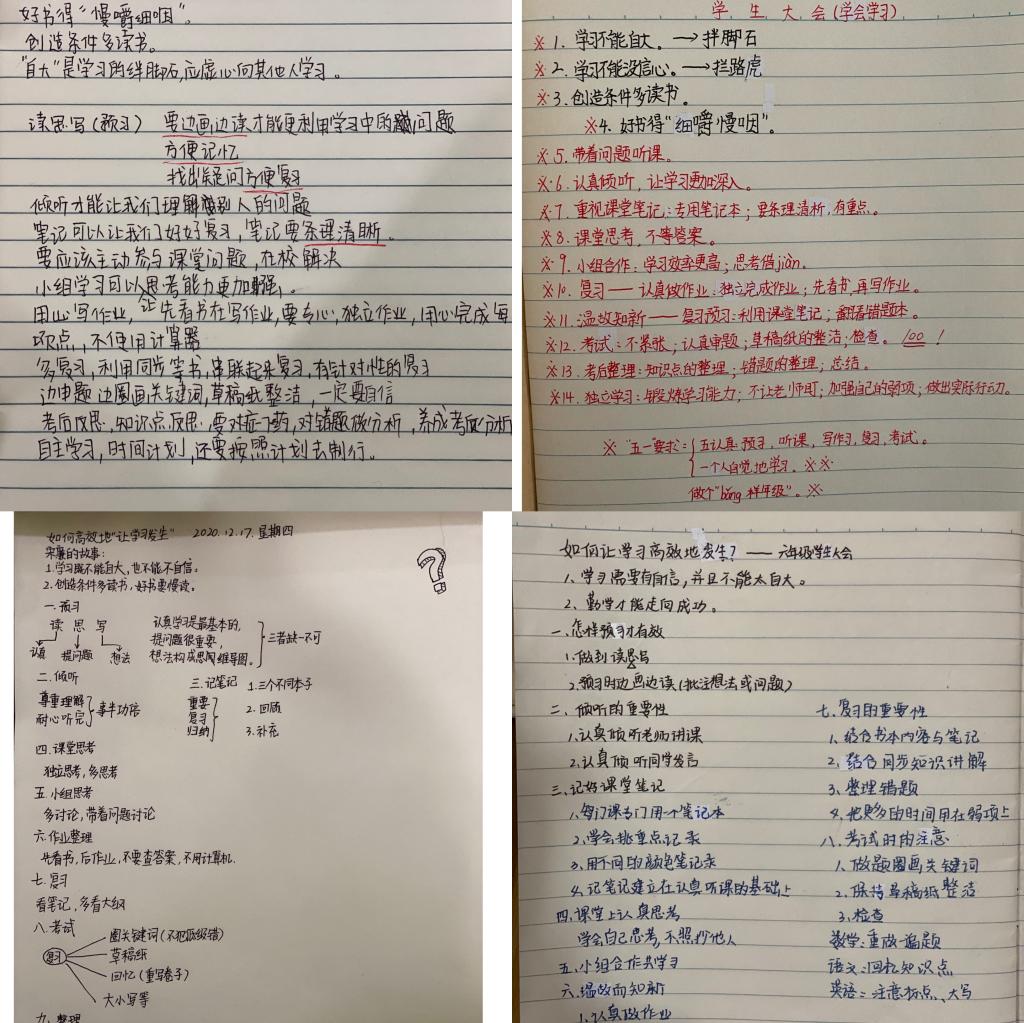 好书得"慢嚼细咽"。
创造条件多读书。
"自大"是学习的绊脚石,应虚心向其他人学习。
读思写(预习) 要边画边读才能更利用学习中的问题
方便记忆
找出疑问方便复习
倾听才能让我们理解别人的问题
笔记可以让我们好好复习,笔记要条理清晰。
要应该主动参与课堂问题,在校解决
小组学习可以让思考能力更加强。
用心写作业,先看书在写作业,要专心,独立作业,用心完成每
项点,不使用计算器
多复习,利用同步等书,串联起来复习,有针对性的复习
边审题边圈画关键词,草稿纸整洁,一定要自信
考后反思,知识点反思,要对症下药,对错题做分析,养成考后分析
自主学习,时间计划,还要按照计划去制行。
学生大会(学会学习)
※1. 学习不能自大。→拌脚石
※2. 学习不能没信心。→拦路虎
※3. 创造条件多读书。
※4. 好书得"细嚼慢咽"。
※5. 带着问题听课。
※6. 认真倾听,让学习更加深入。
※7. 重视课堂笔记:专用笔记本;要条理清析,有重点。
※8. 课堂思考,不等答案。
※9. 小组合作:学习效率更高;思考借jiàn。
※10. 复习——认真做作业:独立完成作业;先看书,再写作业。
※11. 温故知新——复习预习:利用课堂笔记;翻看错题本。
※12. 考试:不紧张;认真审题;草稿纸的整洁;检查。100!
※13. 考后整理:知识点的整理;错题的整理;总结。
※14. 独立学习:锻炼学习能力;不让老师盯;加强自己的弱项;做出实际行动。
※"五一"要求:五认真 预习,听课,写作习,复习,考试。
一个人自觉地学习。※※
做个"bǎng样年级"。※
如何高效地"让学习发生" 2020.12.17.星期四
宋廉的故事:
1.学习既不能自大,也不能不自信。
2.创造条件多读书,好书要慢读。
一.预习
读 思 写
认真 提问题 想法
认真学习是最基本的,
提问题很重要,
想法构成思维导图。
三者缺一不可
二.倾听
尊重理解
耐心听完
事半功倍
三.记笔记
重要
复习
归纳
1.三个不同本子
2.回顾
3.补充
四.课堂思考
独立思考,多思考
五.小组思考
多讨论,带着问题讨论
六.作业整理
先看书,后作业,不要查答案,不用计算机.
七.复习
看笔记,多看大纲
八.考试
复习
圈关键词(不犯低级错)
草稿纸
回忆(重写卷子)
大小写等
九.整理
如何让学习高效地发生?——六年级学生大会
1、学习需要有自信,并且不能太自大。
2、勤学才能走向成功。
一.怎样预习才有效
1.做到读思写
2.预习时边画边读(批注想法或问题)
二、倾听的重要性
1.认真倾听老师讲课
2.认真倾听同学发言
三、记好课堂笔记
1.每门课专门用一个笔记本
2.学会挑重点记录
3.用不同的颜色笔记录
4.记笔记建立在认真听课的基础上
四.课堂上认真思考
学会自己思考,不照抄他人
五.小组合作共学习
六.温故而知新
1.认真做作业
七.复习的重要性
1.结合书本内容与笔记
2.结合同步知识讲解
3.整理错题
4.把更多的时间用在弱项上
八.考试时的注意
1.做题圈画关键词
2.保持草稿纸整洁
3.检查
数学:重做一遍题
语文:回忆知识点
英语:注意标点、大写